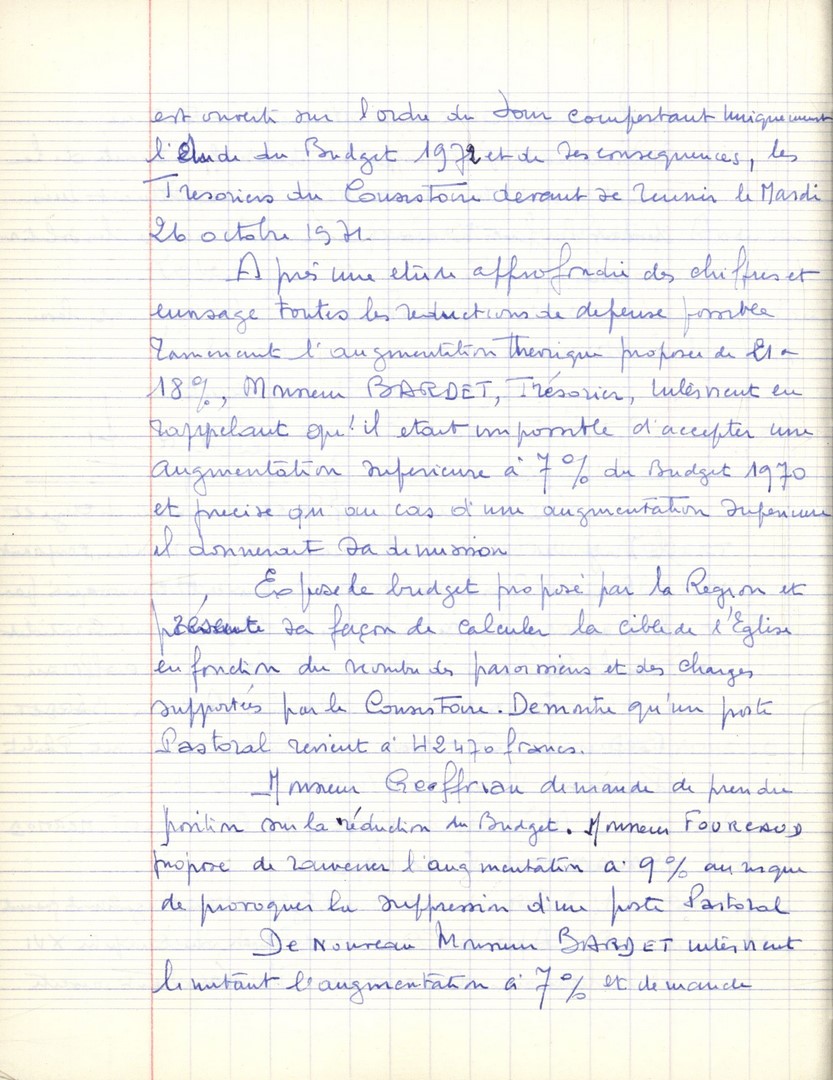 est ouverte sur l'ordre du Jour comportant uniquement
l'étude du Budget 1972 et de ses consequences, les
Tresoriers du Consistoire devant se reunir le Mardi
26 octobre 1971.
Après une etude approfondie des chiffres et
envisage toutes les reductions de depense possible
ramenant l'augmentation theorique proposee de 21 a
18%, Monsieur BARDET, Trésorier, intervient en
rappelant qu'il etait impossible d'accepter une
augmentation superieure à 7% du Budget 1970
et precise qu'au cas d'une augmentation superieure
il donnerait sa demission
Expose le budget proposé par la Region et
présente sa façon de calculer la cible de l'Eglise
en fonction du nombre des paroissiens et des charges
supportées par le Consistoire. Demontre qu'un poste
Pastoral revient à 42470 francs.
Monsieur Geoffriau demande de prendre
position sur la réduction du Budget. Monsieur FOURCAUD
propose de ramener l'augmentation à 9% au risque
de provoquer la suppression d'un poste Pastoral
De Nouveau Monsieur BARDET intervient
limitant l'augmentation à 7% et demande